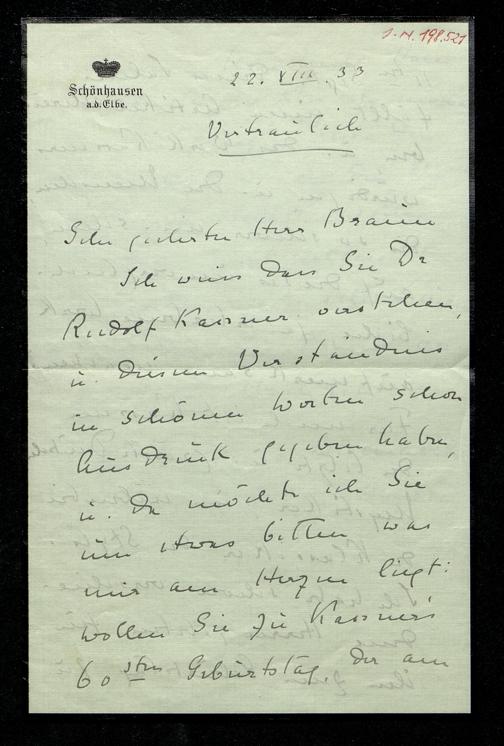 I.N. 198.521
Schönhausen
a.d. Elbe.
22. VIII. 33
Vertraulich
Sehr geehrter Herr Braun
Ich weiss dass Sie Dr
Rudolf Kassner verstehen,
u. diesem Verständnis
in schönen Worten schon
Ausdruck gegeben haben,
u. da möchte ich Sie
um etwas bitten was
mir am Herzen liegt:
wollen Sie zu Kassner's
60sten Geburtstag, der am